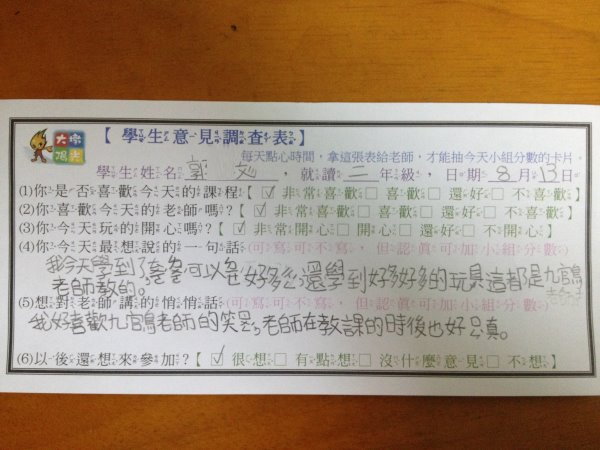 大宗
陽光
【學生意見調查表】
每天點心時間，拿這張表給老師，才能抽今天小組分數的卡片。
學生姓名 郭 ，就讀 三 年級，日期 8 月 13 日
(1)你是否喜歡今天的課程【☑非常喜歡□喜歡□還好□不喜歡】
(2)你喜歡今天的老師嗎?【☑非常喜歡□喜歡□還好□不喜歡】
(3)你今天玩的開心嗎?【☑非常開心□開心□還好□不開心】
(4)你今天最想說的一句話(可寫可不寫，但認真可加小組分數)
我今天學到了 可以 好多 還學到好多好多的玩具這都是九官鳥老師
老師教的。
(5)想對老師講的悄悄話(可寫可不寫，但認真可加小組分數)
我好喜歡九官鳥老師的笑 老師在教課的時後也好 真。
(6)以後還想來參加?【☑很想□有點想□沒什麼意見□不想】